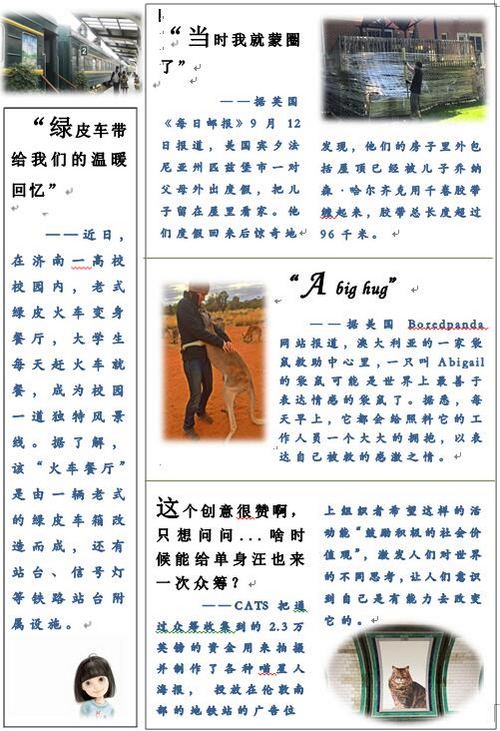 “绿皮车带
给我们的温暖
回忆”
——近日，
在济南一高校
校园内，老式
绿皮火车变身
餐厅，大学生
每天赶火车就
餐，成为校园
一道独特风景
线。据了解，
该“火车餐厅”
是由一辆老式
的绿皮车箱改
造而成，还有
站台、信号灯
等铁路站台附
属设施。
“当时我就蒙圈
了”
——据英国
《每日邮报》9月12
日报道，美国宾夕法
尼亚州匹兹堡市一对
父母外出度假，把儿
子留在屋里看家。他
们度假回来后惊奇地
发现，他们的房子里外包
括屋顶已经被儿子乔纳
森·哈尔齐克用千卷胶带
缠起来，胶带总长度超过
96千米。
“A big hug”
——据美国 Boredpanda
网站报道，澳大利亚的一家袋
鼠救助中心里，一只叫 Abigail
的袋鼠可能是世界上最善于
表达情感的袋鼠了。据悉，每
天早上，它都会给照料它的工
作人员一个大大的拥抱，以表
达自己被救的感激之情。
这个创意很赞啊，
只想问问...啥时
候能给单身汪也来
一次众筹？
——CATS 把通
过众筹收集到的2.3万
英镑的资金用来拍摄
并制作了各种喵星人
海报，投放在伦敦南
部的地铁站的广告位
上组织者希望这样的活
动能“鼓励积极的社会价
值观”，激发人们对世界
的不同思考，让人们意识
到自己是有能力去改变
它的。